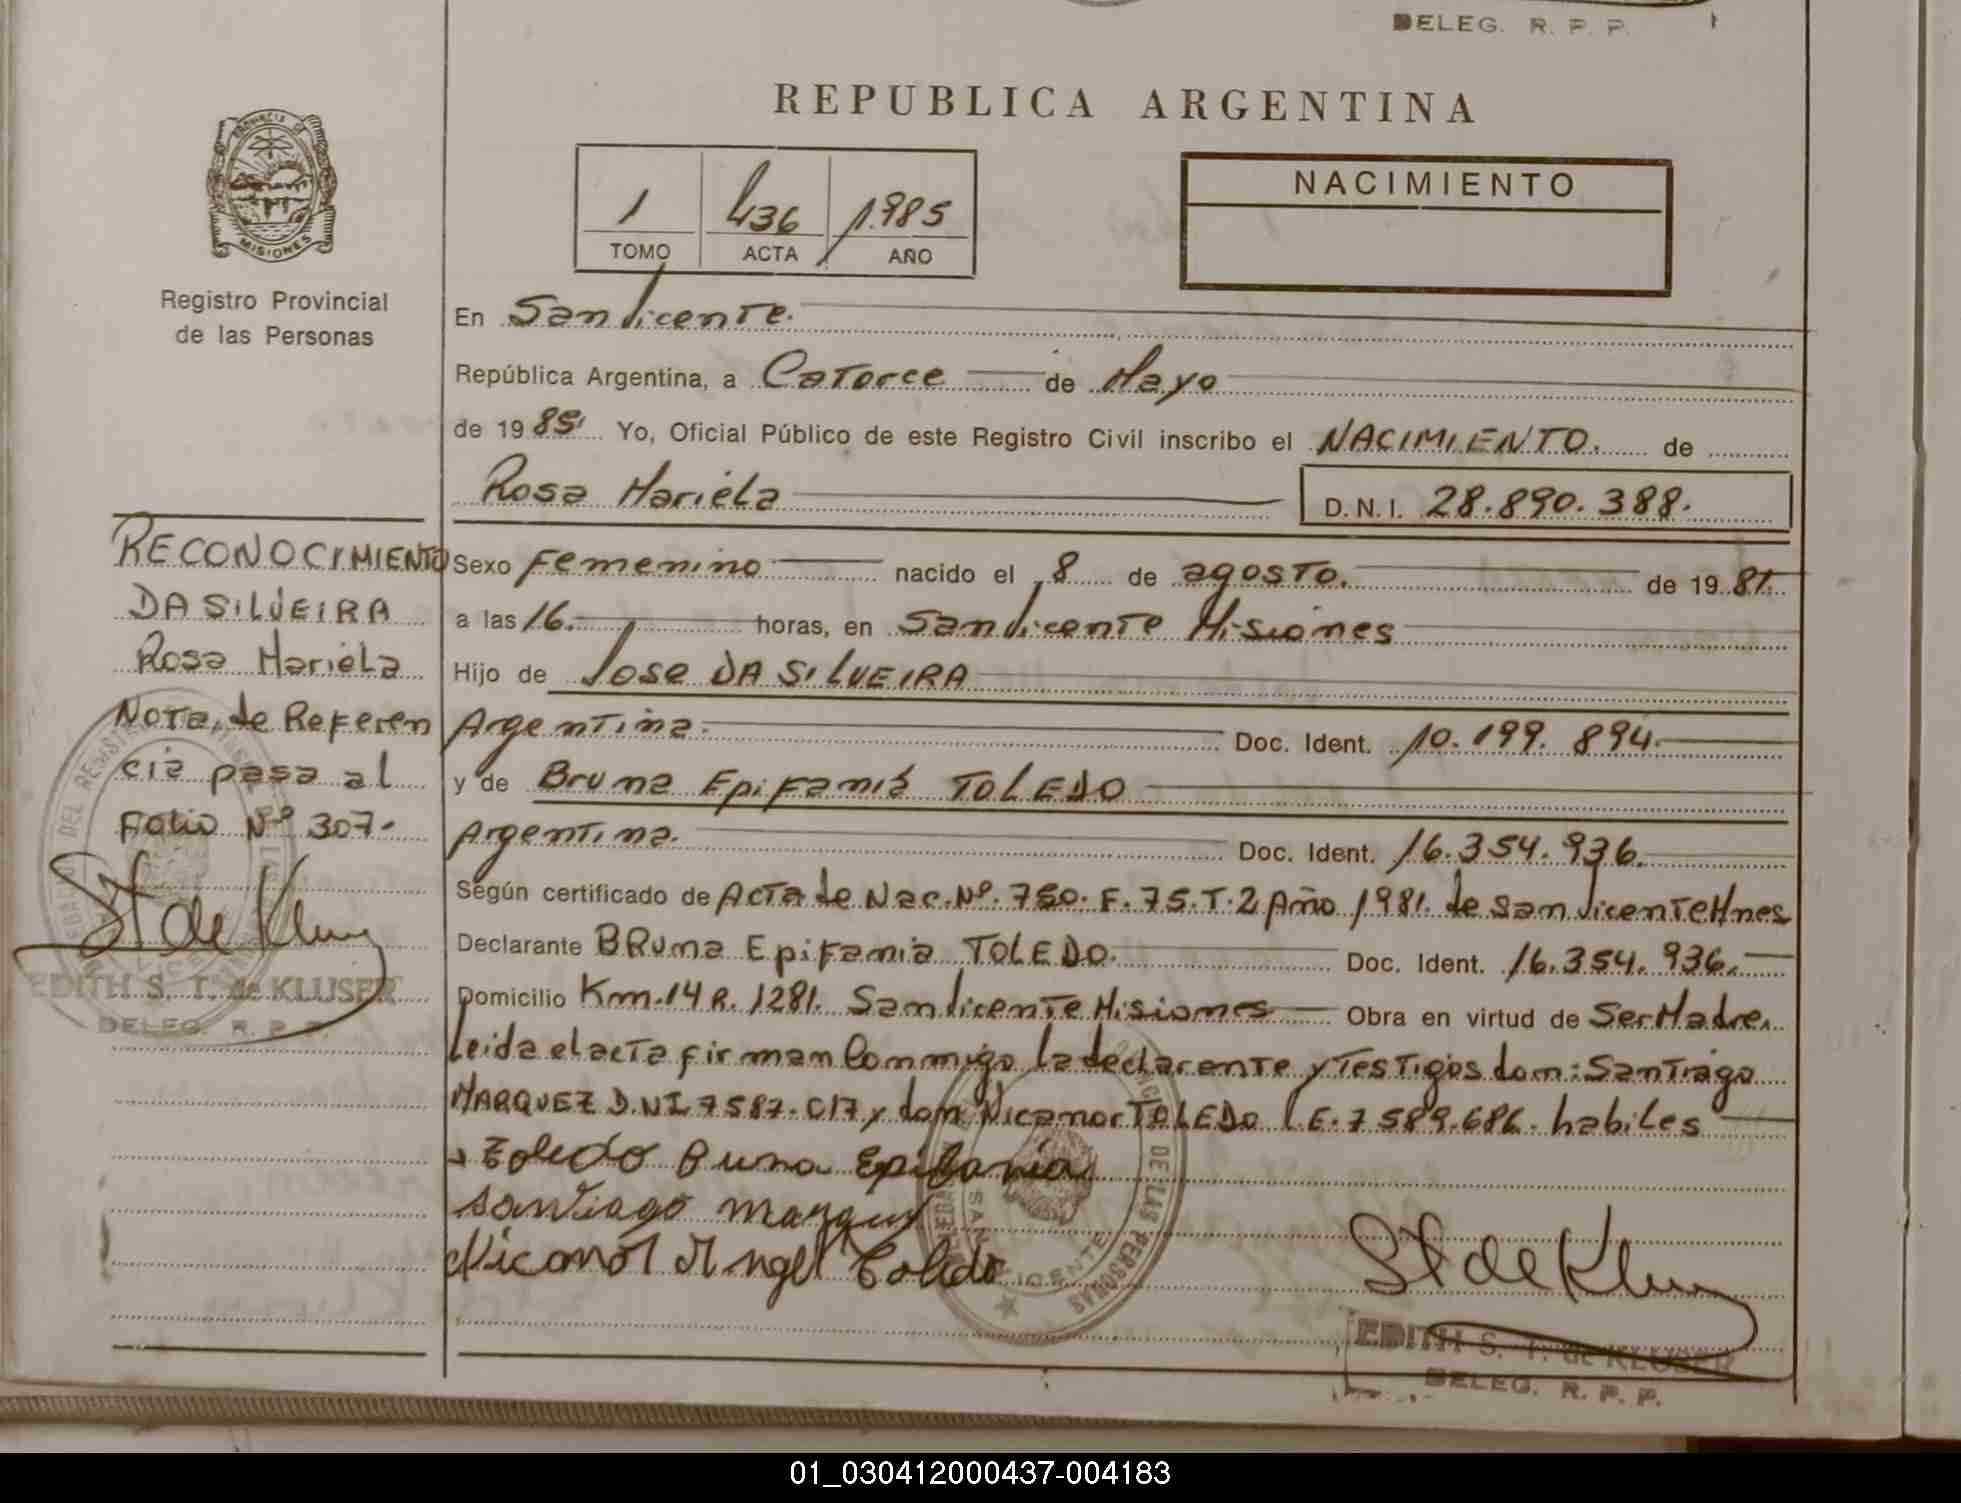 DELEG. R. P. P.
REPUBLICA ARGENTINA
PROVINCIA DE
MISIONES
Registro Provincial
de las Personas
1 436 1.985
TOMO ACTA AÑO
NACIMIENTO
En San Vicente.
República Argentina, a Catorce de Mayo
de 1985 Yo, Oficial Público de este Registro Civil inscribo el NACIMIENTO. de
Rosa Mariela D.N.I. 28.890.388.
Sexo Femenino nacido el 8 de agosto. de 1981.
a las 16. horas, en San Vicente Misiones
Hijo de Jose DA SILVEIRA
Argentina. Doc. Ident. 10.199.894.
y de Bruna Epifania TOLEDO
Argentina. Doc. Ident. 16.354.936.
Según certificado de Acta de Nac. Nº. 750. F. 75. T. 2 Año 1981. de San Vicente Mnes
Declarante BRuna Epifania TOLEDO. Doc. Ident. 16.354.936.
Domicilio Km. 14 R. 1281. San Vicente Misiones Obra en virtud de Ser Madre.
Leida el acta firman Conmigo la declarente y Testigos don: Santiago
MARQUEZ D.NI 7587.017 y don Nicanor TOLEDO L.E. 7589.686. habiles
Toledo Buna Epifania
Santiago Marquez
Nicanor Angel Toledo
St de Kluser
EDITH S. T. de KLUSER
DELEG. R. P. P.
RECONOCIMIENTO
DA SILVEIRA
Rosa Mariela
Nota de Referen
cia pasa al
Folio Nº 307.
St de Kluser
EDITH S. T. de KLUSER
DELEG. R. P. P.
DE LAS PERSONAS
SAN VICENTE
01_030412000437-004183